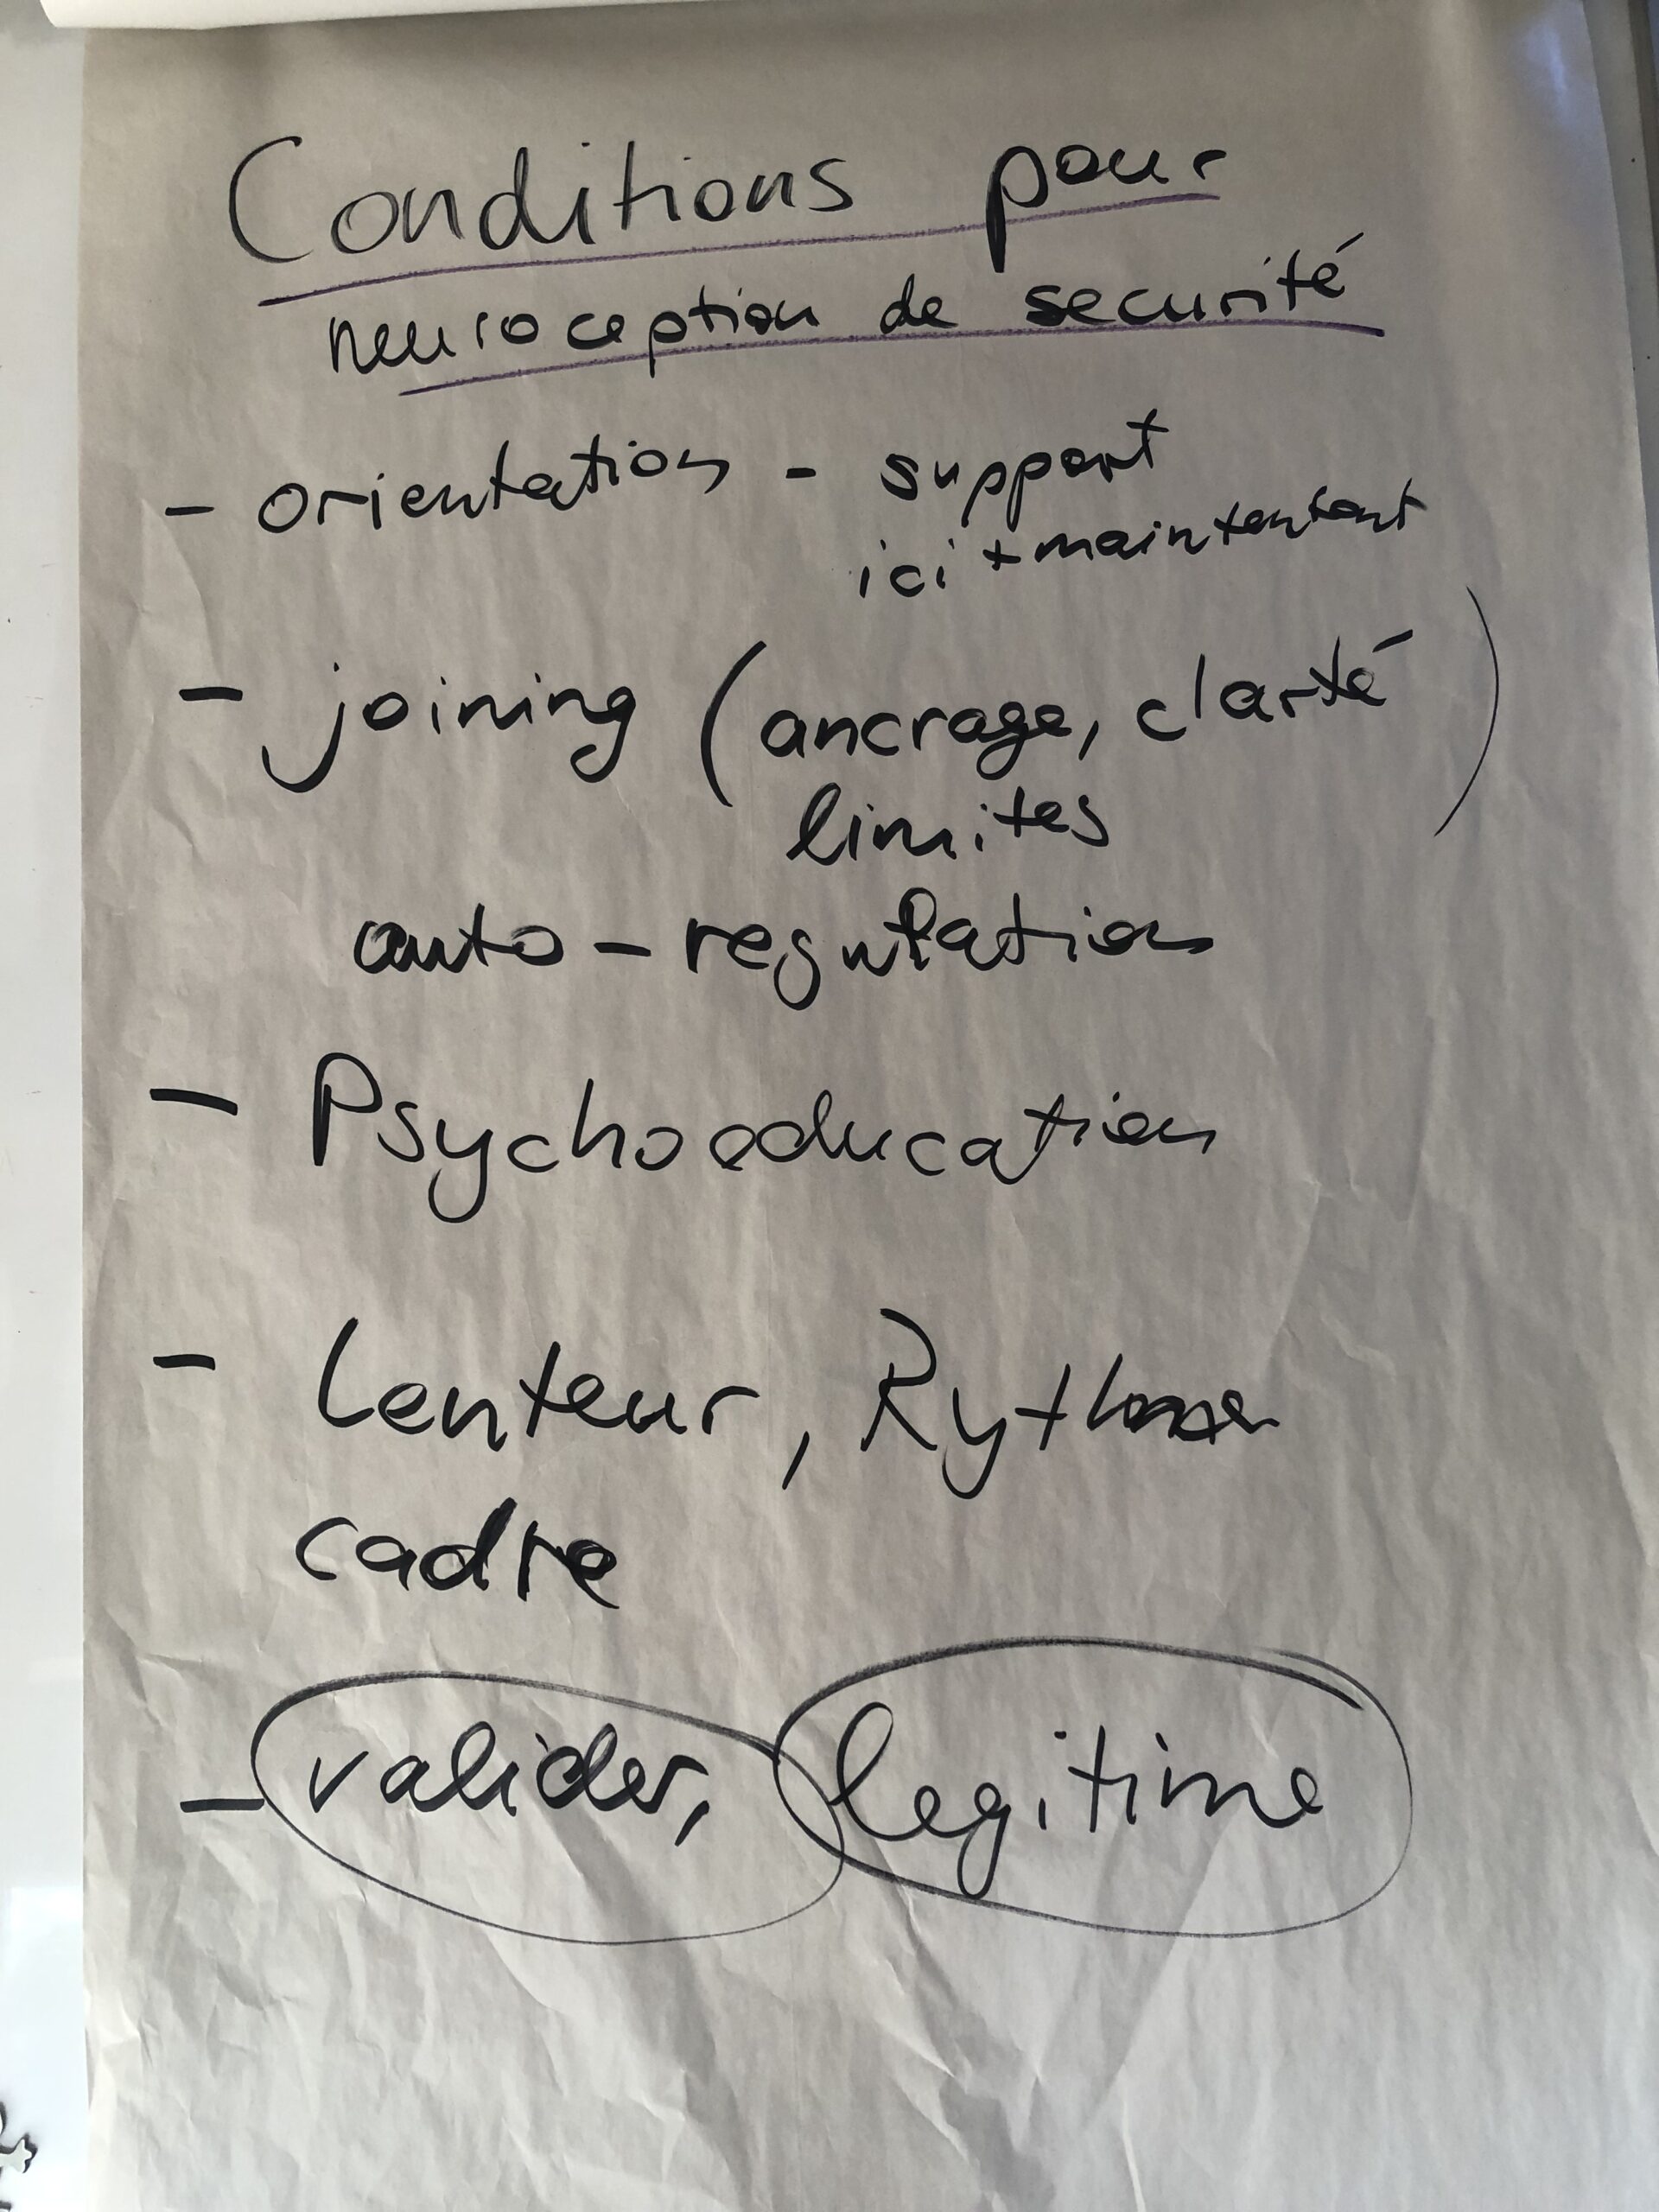 Conditions pour
neuroception de securité
- orientation - support
ici + maintentant
- joining (ancrage, clarté
limites)
auto-regulation
- Psychoeducation
- Lenteur, Rythme
cadre
- valider, legitime